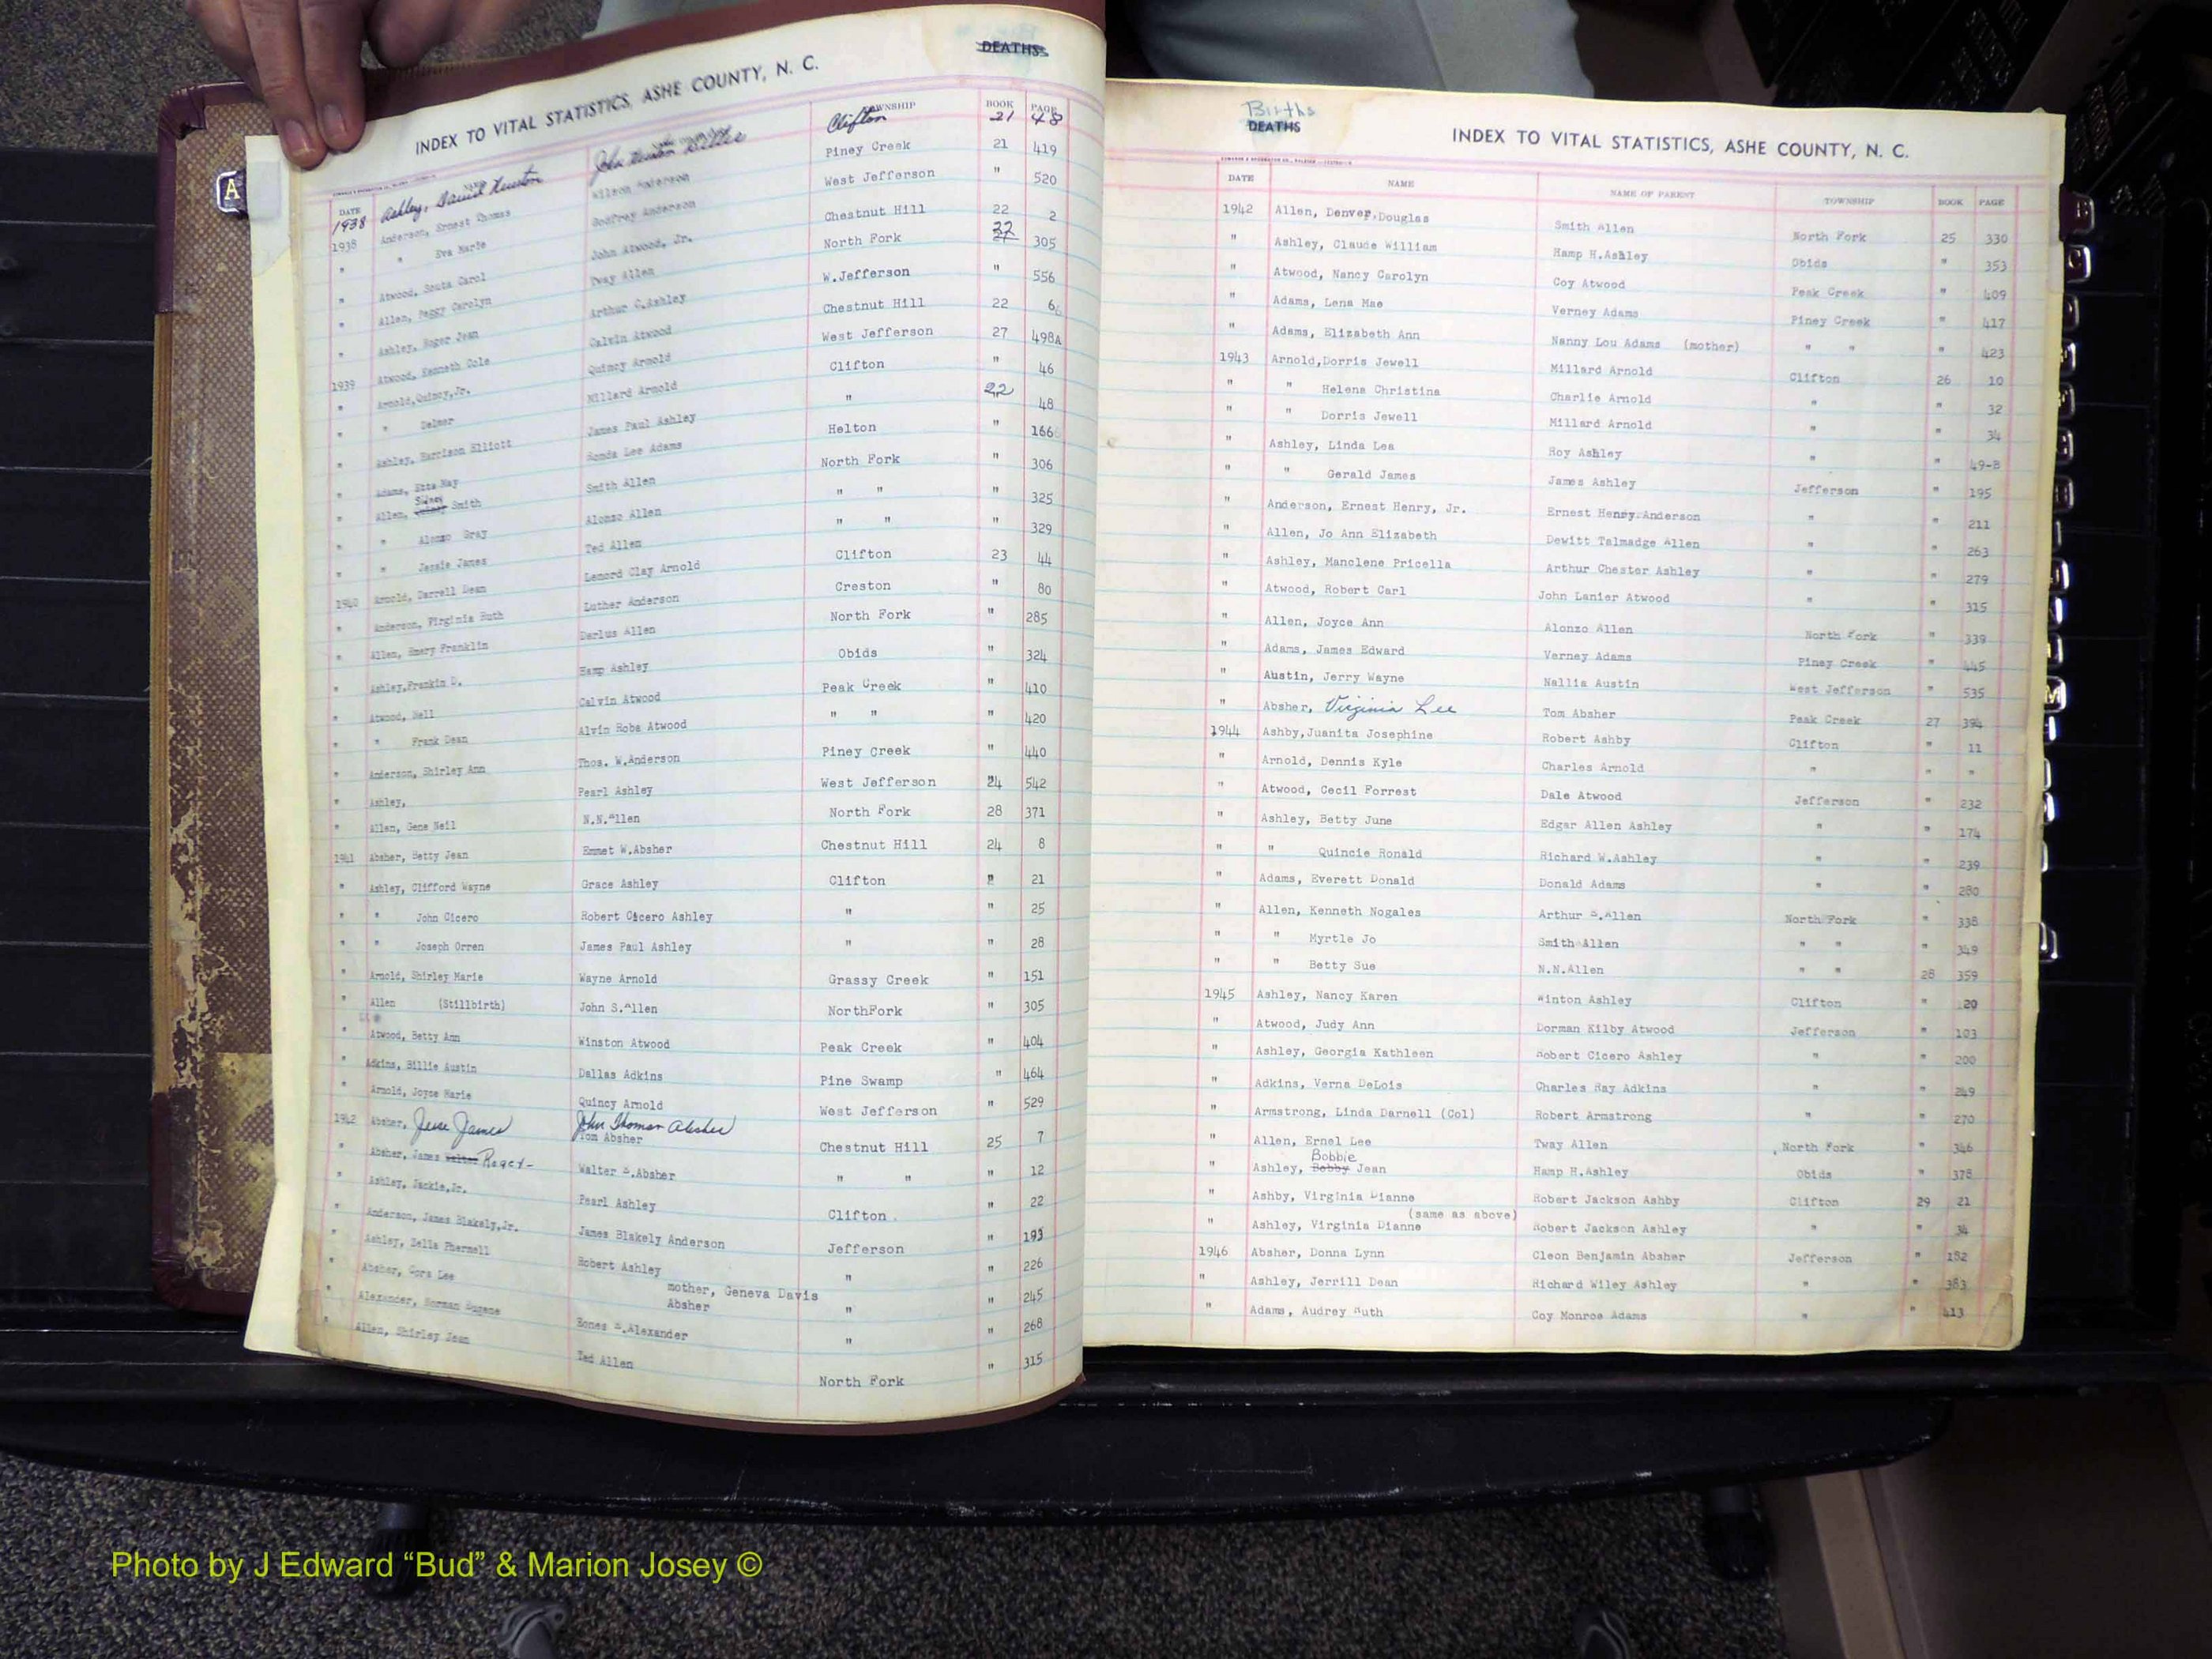 DEATHS
INDEX TO VITAL STATISTICS, ASHE COUNTY, N. C.
DATE TOWNSHIP BOOK PAGE
1938 Ashley, David Huston John Clifton 21 48
1938 Anderson, Ernest Thomas Wilson Anderson Piney Creek 21 419
" " Eva Marie Godfrey Anderson West Jefferson " 520
" Atwood, Carol John Atwood, Jr. Chestnut Hill 22 2
" Allen, Peggy Carolyn Tway Allen North Fork 22 305
" Ashley, Roger Jean Arthur C.Ashley W.Jefferson " 556
1939 Atwood, Kenneth Cole Calvin Atwood Chestnut Hill 22 6
" Arnold,Quincy,Jr. Quincy Arnold West Jefferson 27 498A
" " Delmer Millard Arnold Clifton " 46
" Ashley, Harrison Elliott James Paul Ashley " 22 48
" Adams, Etta May Lee Adams Helton " 166
" Allen, Sidney Smith Smith Allen North Fork " 306
" " Alonzo Gray Alonzo Allen " " " 325
" " Jessie James Ted Allen " " " 329
1940 Arnold, Darrell Dean Lenord Clay Arnold Clifton 23 44
" Anderson, Virginia Ruth Luther Anderson Creston " 80
" Allen, Emery Franklin Darius Allen North Fork " 285
" Ashley,Frankin D. Hamp Ashley Obids " 324
" Atwood, Nell Calvin Atwood Peak Creek " 410
" " Frank Dean Alvin Robs Atwood " " " 420
" Anderson, Shirley Ann Thos. W.Anderson Piney Creek " 440
" Ashley, Pearl Ashley West Jefferson 24 542
" Allen, Gene Neil N.N.Allen North Fork 28 371
1941 Absher, Betty Jean Emmet W.Absher Chestnut Hill 24 8
" Ashley, Clifford Wayne Grace Ashley Clifton " 21
" " John Cicero Robert Cicero Ashley " " 25
" " Joseph Orren James Paul Ashley " " 28
" Arnold, Shirley Marie Wayne Arnold Grassy Creek " 151
" Allen (Stillbirth) John S.Allen NorthFork " 305
" Atwood, Betty Ann Winston Atwood Peak Creek " 404
" Adkins, Billie Austin Dallas Adkins Pine Swamp " 464
" Arnold, Joyce Marie Quincy Arnold West Jefferson " 529
John Thomas Absher
1942 Absher, Jesse James Tom Absher Chestnut Hill 25 7
" Absher, James Walter Roger- Walter S.Absher " " " 12
" Ashley, Jackie,Jr. Pearl Ashley Clifton " 22
" Anderson, James Blakely,Jr. James Blakely Anderson Jefferson " 193
" Ashley, Zella Phermell Robert Ashley " " 226
" Absher, Cora Lee mother, Geneva Davis Absher " " 245
" Alexander, Norman Eugene Alexander " " 268
" Allen, Shirley Jean Ted Allen North Fork " 315
Births
DEATHS
INDEX TO VITAL STATISTICS, ASHE COUNTY, N. C.
DATE NAME NAME OF PARENT TOWNSHIP BOOK PAGE
1942 Allen, Denver,Douglas Smith Allen North Fork 25 330
" Ashley, Claude William Hamp H.Ashley Obids " 353
" Atwood, Nancy Carolyn Coy Atwood Peak Creek " 409
" Adams, Lena Mae Verney Adams Piney Creek " 417
" Adams, Elizabeth Ann Nanny Lou Adams (mother) " " " 423
1943 Arnold,Dorris Jewell Millard Arnold Clifton 26 10
" " Helena Christina Charlie Arnold " " 32
" " Dorris Jewell Millard Arnold " " 34
" Ashley, Linda Lea Roy Ashley " " 49-B
" " Gerald James James Ashley Jefferson " 195
" Anderson, Ernest Henry, Jr. Ernest Henry Anderson " " 211
" Allen, Jo Ann Elizabeth Dewitt Talmadge Allen " " 263
" Ashley, Manclene Pricella Arthur Chester Ashley " " 279
" Atwood, Robert Carl John Lanier Atwood " " 315
" Allen, Joyce Ann Alonzo Allen North Fork " 339
" Adams, James Edward Verney Adams Piney Creek " 445
" Austin, Jerry Wayne Nallia Austin West Jefferson " 535
" Absher, Virginia Lee Tom Absher Peak Creek 27 394
1944 Ashby,Juanita Josephine Robert Ashby Clifton " 11
" Arnold, Dennis Kyle Charles Arnold " " "
" Atwood, Cecil Forrest Dale Atwood Jefferson " 232
" Ashley, Betty June Edgar Allen Ashley " " 174
" " Quincie Ronald Richard W.Ashley " " 239
" Adams, Everett Donald Donald Adams " " 280
" Allen, Kenneth Nogales Arthur S.Allen North Fork " 338
" " Myrtle Jo Smith Allen " " " 349
" " Betty Sue N.N.Allen " " 28 359
1945 Ashley, Nancy Karen Winton Ashley Clifton " 120
" Atwood, Judy Ann Dorman Kilby Atwood Jefferson " 103
" Ashley, Georgia Kathleen Robert Cicero Ashley " " 200
" Adkins, Verna DeLois Charles Ray Adkins " " 249
" Armstrong, Linda Darnell (Col) Robert Armstrong " " 270
" Allen, Ernel Lee Tway Allen North Fork " 346
Bobbie
" Ashley, Bobby Jean Hamp H.Ashley Obids " 378
" Ashby, Virginia Dianne Robert Jackson Ashby Clifton 29 21
(same as above)
" Ashley, Virginia Dianne Robert Jackson Ashley " " 34
1946 Absher, Donna Lynn Cleon Benjamin Absher Jefferson " 182
" Ashley, Jerrill Dean Richard Wiley Ashley " " 383
" Adams, Audrey Ruth Coy Monroe Adams " " 413
A
C
M
Photo by J Edward “Bud” & Marion Josey ©